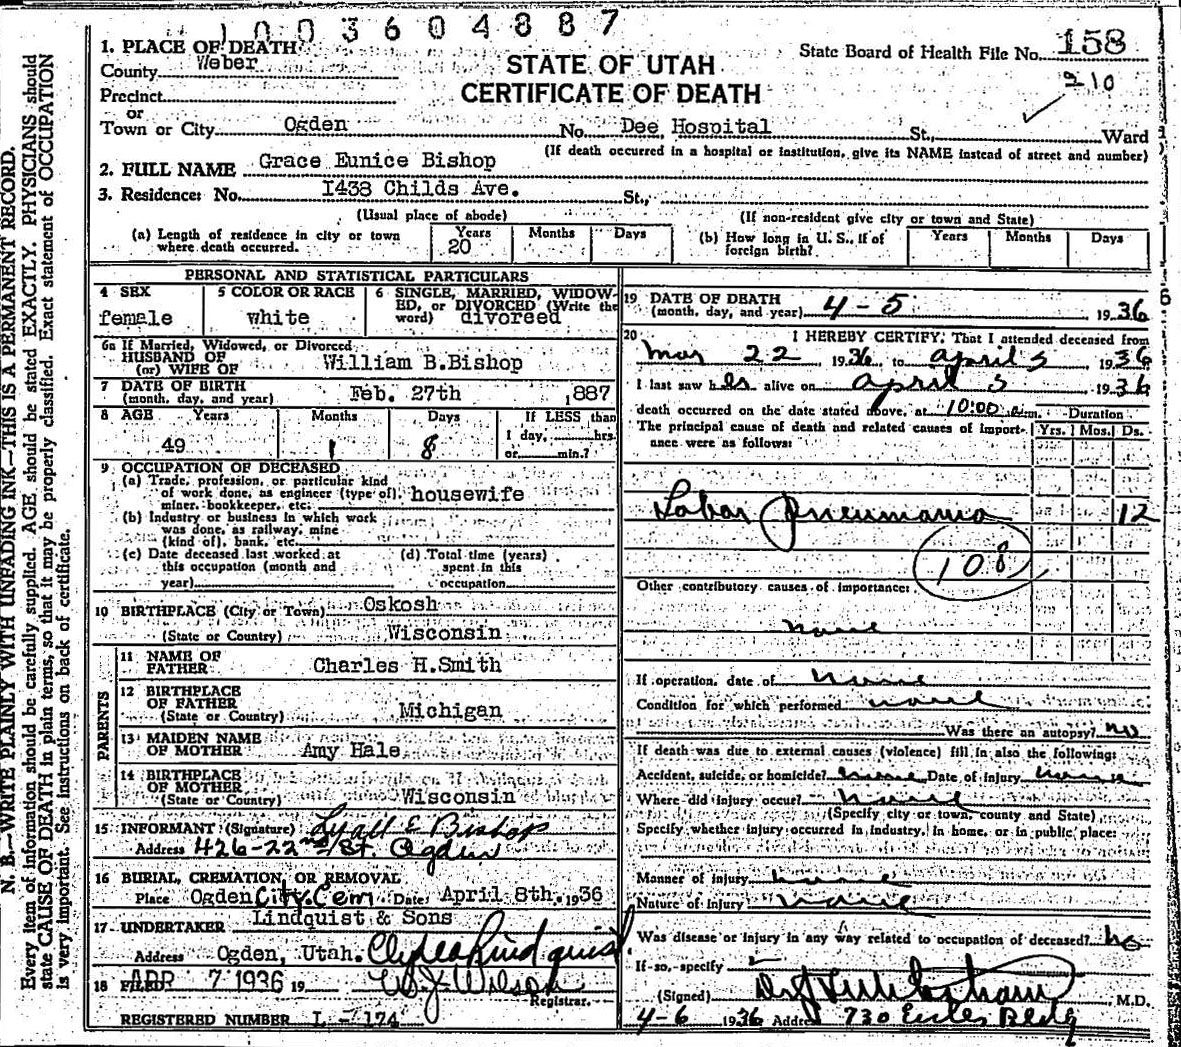 1003604887
1. PLACE OF DEATH
County Weber
Precinct
or
Town or City Ogden No. Dee Hospital St. Ward
(If death occurred in a hospital or institution, give its NAME instead of street and number)
STATE OF UTAH
CERTIFICATE OF DEATH
State Board of Health File No. 158
210
2. FULL NAME Grace Eunice Bishop
3. Residence: No. 1438 Childs Ave. St.,
(Usual place of abode) (If non-resident give city or town and State)
(a) Length of residence in city or town where death occurred. Years 20 Months Days
(b) How long in U. S., if of foreign birth? Years Months Days
PERSONAL AND STATISTICAL PARTICULARS
4 SEX female
5 COLOR OR RACE white
6 SINGLE, MARRIED, WIDOWED, or DIVORCED (Write the word) divorced
6a If Married, Widowed, or Divorced
HUSBAND OF
(or) WIFE OF William B.Bishop
7 DATE OF BIRTH
(month, day, and year) Feb. 27th 1887
8 AGE Years 49 Months 1 Days 8
If LESS than 1 day, hrs. or min.?
9 OCCUPATION OF DECEASED
(a) Trade, profession, or particular kind
of work done, as engineer (type of), housewife
miner, bookkeeper, etc.
(b) Industry or business in which work
was done, as railway, mine
(kind of), bank, etc.
(c) Date deceased last worked at
this occupation (month and
year)
(d) Total time (years)
spent in this
occupation
10 BIRTHPLACE (City or Town) Oskosh
(State or Country) Wisconsin
PARENTS
11 NAME OF
FATHER Charles H.Smith
12 BIRTHPLACE
OF FATHER
(State or Country) Michigan
13 MAIDEN NAME
OF MOTHER Amy Hale
14 BIRTHPLACE
OF MOTHER
(State or Country) Wisconsin
15 INFORMANT (Signature) Lyall E Bishop
Address 426-22nd St. Ogden
16 BURIAL, CREMATION, OR REMOVAL
Place Ogden City Cem Date April 8th, 1936
17 UNDERTAKER Lindquist & Sons
Address Ogden, Utah. Clyde Lindquist
18 FILED APR 7 1936 19 Wilson
Registrar.
REGISTERED NUMBER L - 174
19 DATE OF DEATH
(month, day, and year) 4-5 1936
20 I HEREBY CERTIFY, That I attended deceased from
Mar 22 1936 to april 5 1936
I last saw her alive on april 5 1936
death occurred on the date stated above, at 10:00 a.m. Duration
The principal cause of death and related causes of importance were as follows: Yrs. Mos. Ds.
Lobar pneumonia 12
108
Other contributory causes of importance:
none
If operation, date of none
Condition for which performed none
Was there an autopsy? no
If death was due to external causes (violence) fill in also the following:
Accident, suicide, or homicide? none Date of injury none 19
Where did injury occur? none
(Specify city or town, county and State)
Specify whether injury occurred in industry, in home, or in public place:
Manner of injury none
Nature of injury none
Was disease or injury in any way related to occupation of deceased? no
If so, specify
(Signed) M.D.
4-6 1936 Address 730 Eccles Bldg
N. B.—WRITE PLAINLY WITH UNFADING INK—THIS IS A PERMANENT RECORD.
Every item of information should be carefully supplied. AGE should be stated EXACTLY. PHYSICIANS should
state CAUSE OF DEATH in plain terms, so that it may be properly classified. Exact statement of OCCUPATION
is very important. See instructions on back of certificate.